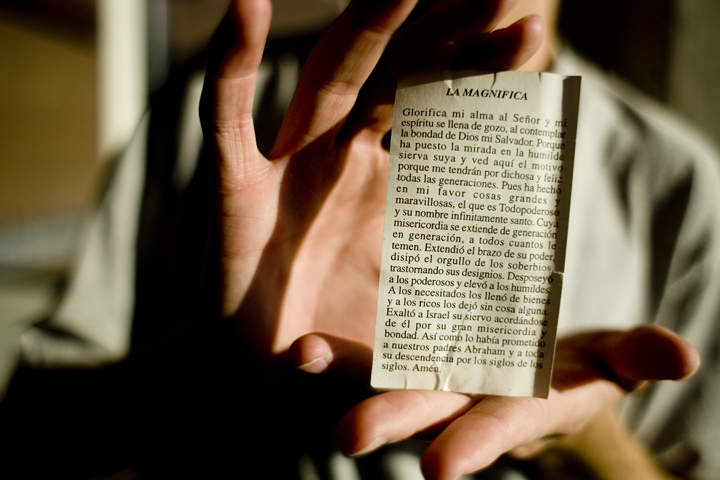 LA MAGNIFICA
Glorifica mi alma al Señor y mi
espíritu se llena de gozo, al contemplar
la bondad de Dios mi Salvador. Porque
ha puesto la mirada en la humilde
sierva suya y ved aquí el motivo
porque me tendrán por dichosa y feliz
todas las generaciones. Pues ha hecho
en mi favor cosas grandes y
maravillosas, el que es Todopoderoso
y su nombre infinitamente santo. Cuya
misericordia se extiende de generación
en generación, a todos cuantos le
temen. Extendió el brazo de su poder,
disipó el orgullo de los soberbios
trastornando sus designios. Desposeyó
a los poderosos y elevó a los humildes.
A los necesitados los llenó de bienes
y a los ricos los dejó sin cosa alguna.
Exaltó a Israel su siervo acordándose
de él por su gran misericordia y
bondad. Así como lo había prometido
a nuestros padres Abraham y a toda
su descendencia por los siglos de los
siglos. Amén.